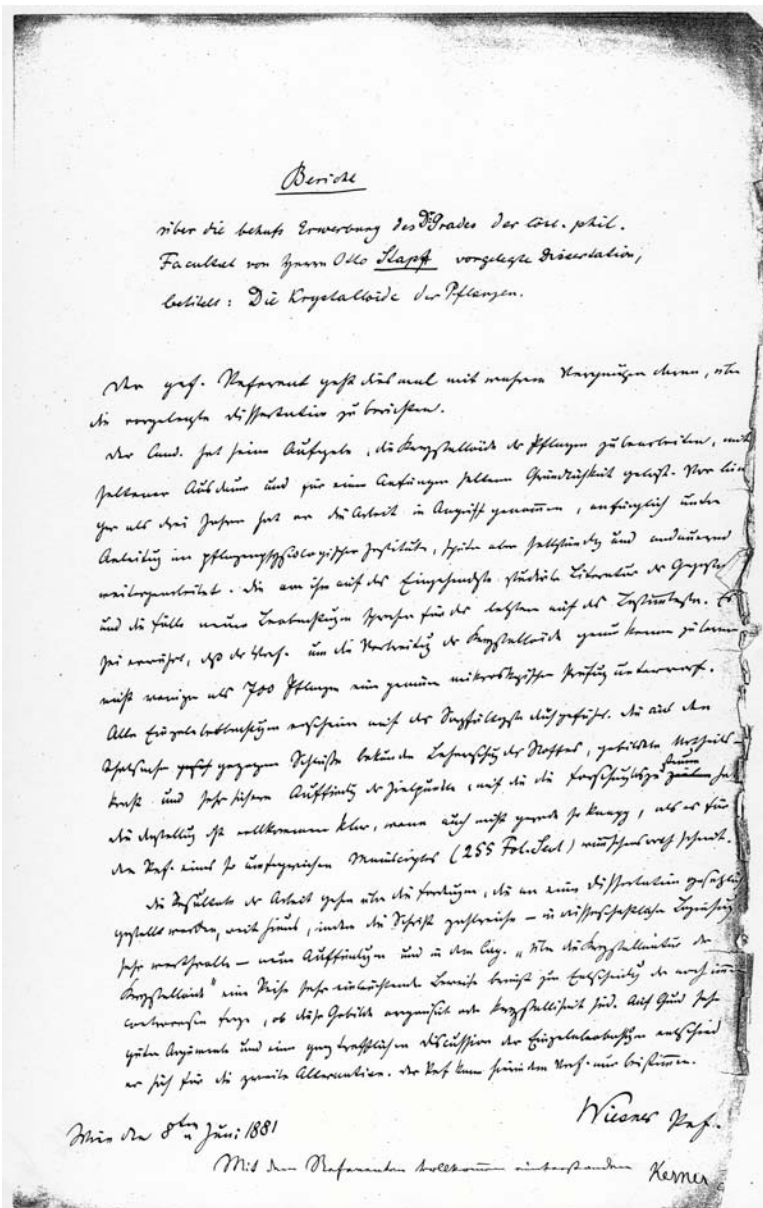 Bericht
über die behufs Erwerbung des Dr Grades der löbl. phil.
Facultät von Herrn Otto Stapf vorgelegte Dissertation,
betitelt: Die Krystalloide der Pflanzen.
Der gef. Referent geht dies mal mit wahrem Vergnügen daran, über
die vorgelegte Dissertation zu berichten.
Der Cand. hat seine Aufgabe, die Krystalloide der Pflanzen zu bearbeiten, mit
seltener Ausdauer und für einen Anfänger seltenen Gründlichkeit gelöst. Vor län
ger als drei Jahren hat er die Arbeit in Angriff genommen, anfänglich unter
Anleitung im pflanzenphysiologischen Institute, später aber selbständig und andauernd
weitergearbeitet. Die von ihm auf das Eingehendste studierte Literatur des Gegenstandes
und die Fülle neuer Beobachtungen sprechen für das letztere auf das Bestimmteste. Es
sei erwähnt, daß der Verf. um die Verbreitung der Krystalloide genau kennen zu lernen
nicht weniger als 700 Pflanzen einer genauen mikroskopischen Prüfung unterwarf.
Alle Einzelbeobachtungen erscheinen auf das Sorgfältigste durchgeführt. Die aus den
Thatsachen gezogenen Schlüsse bekunden Beherrschung des Stoffes, gebildete Urtheils-
kraft und sehr sichere Auffindung der Zielpunkte, auf die die Forschung zu hat
die Darstellung ist vollkommen klar, wenn auch nicht gerade so knapp, als es für
den Ref. eines so umfangreichen Manuscriptes (255 Fol. Seit) wünschenswerth scheint.
Die Resultate der Arbeit gehen über die Forderungen, die an eine Dissertation gesetzlich
gestellt werden, weit hinaus, indem die Schrift zahlreiche – in wissenschaftlicher Beziehung
sehr werthvolle – neue Auffindungen und in dem Cap. „Über die Krystallnatur der
Krystalloide" eine Reihe sehr einleuchtender Beweise bringt zur Entscheidung der noch immer
controversen Frage, ob diese Gebilde organisirt oder krystallisirt sind. Auf Grund sehr
guter Argumente und einer ganz trefflichen Discussion der Einzelbeobachtungen entschied
er sich für die zweite Alternative. Der Ref. kann hierin dem Verf. nur beistimmen.
Wien den 8ten Juni 1881
Wiesner Ref.
Mit dem Referenten vollkommen einverstanden Kerner